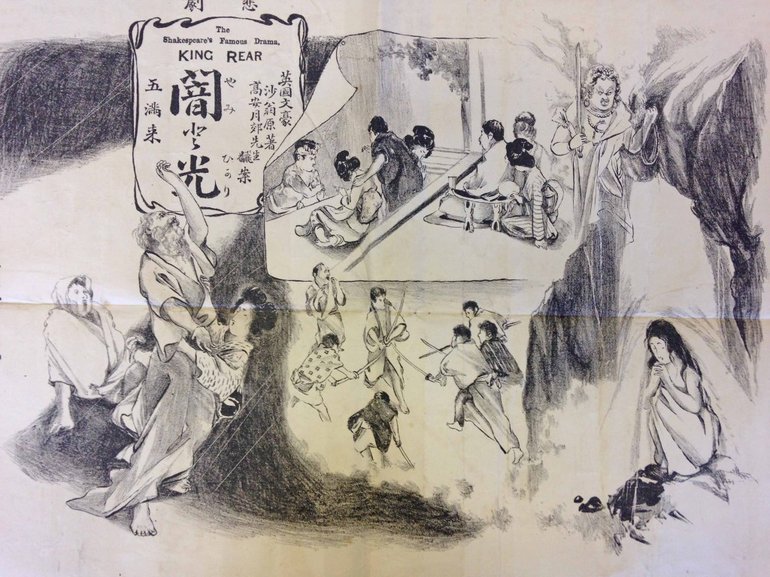 悲劇
The
Shakespeare's Famous Drama,
KING REAR
英國文豪
沙翁原著
高安月郊先生飜案
やみ ひかり
闇と光